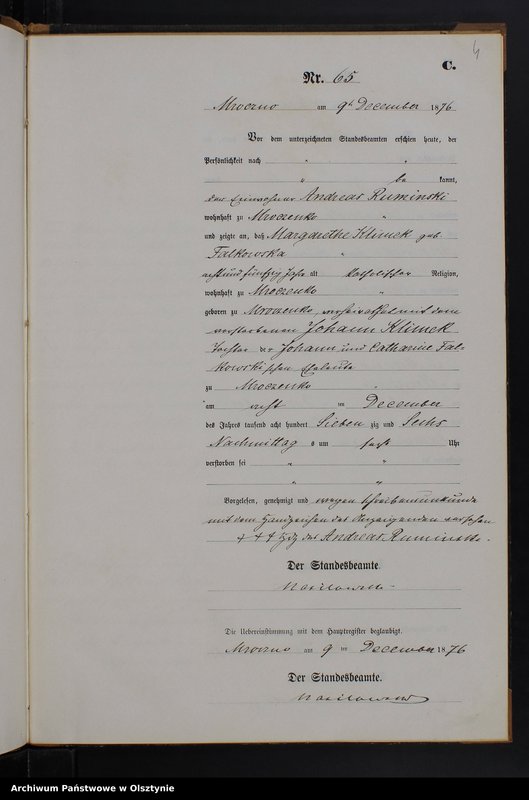 4
C.
Nr. 65
Mroczno am 9ten December 1876
Vor dem unterzeichneten Standesbeamten erschien heute, der
Persönlichkeit nach
be kannt,
der Einwohner Andreas Ruminski
wohnhaft zu Mroczenko
und zeigte an, daß Margarethe Klimek geb.
Falkowska
acht und fünfzig Jahre alt katholischer Religion,
wohnhaft zu Mroczenko
geboren zu Mroczenko, verheirathet mit dem
verstorbenen Johann Klimek
Tochter der Johann und Catharine Fal-
kowskischen Eheleute
zu Mroczenko
am acht ten December
des Jahres tausend acht hundert Sieben zig und Sechs
Nachmittag s um sechs Uhr
verstorben sei
Vorgelesen, genehmigt und wegen Schreibensunkunde
mit dem Handzeichen des Anzeigenden versehen
+++ Hdz des Andreas Ruminski.
Der Standesbeamte
Die Uebereinstimmung mit dem Hauptregister beglaubigt.
Mroczno am 9 ten December 1876
Der Standesbeamte.
Archiwum Państwowe w Olsztynie